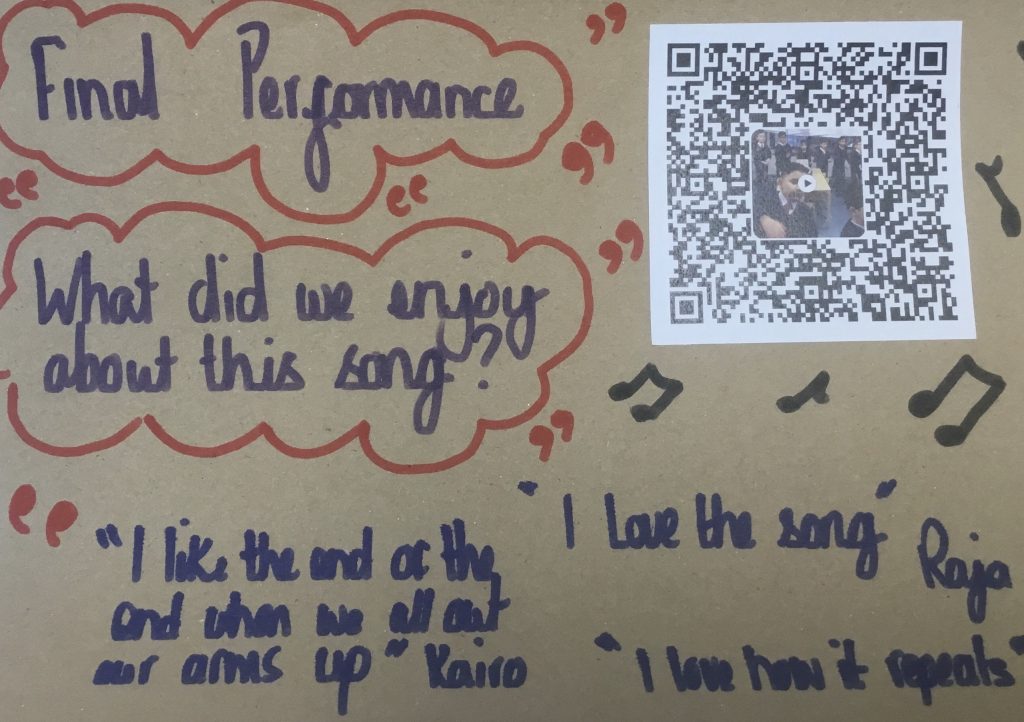 Final Performance
What did we enjoy
about this song?
"I like the end at the
end when we all out
our arms up" Kairo
"I love the song"
Raja
"I love how it repeats"